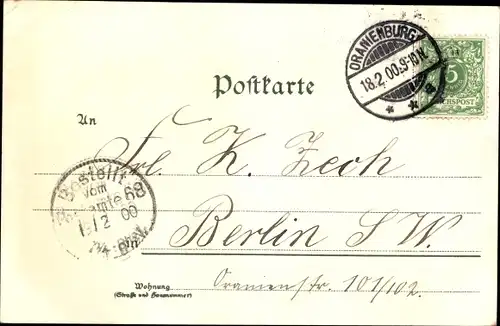 ORANIENBURG
18.2.00.9-10N.
* * a
5
REICHSPOST
Postkarte
An
Frl. K. Zech
Bestellt
vom
Postamte 68
19/2 00
in Berlin S W.
Wohnung
(Straße und Hausnummer)
Oranienstr. 101/102.